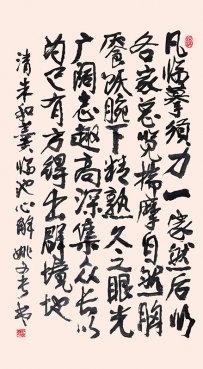 凡临摹须力一家然后以
各家总览揣摩自然胸
餍饫腕下精熟久之眼光
广阔志趣高深集众长以
为己有方得出群境地
清朱和羹临池心解 姚